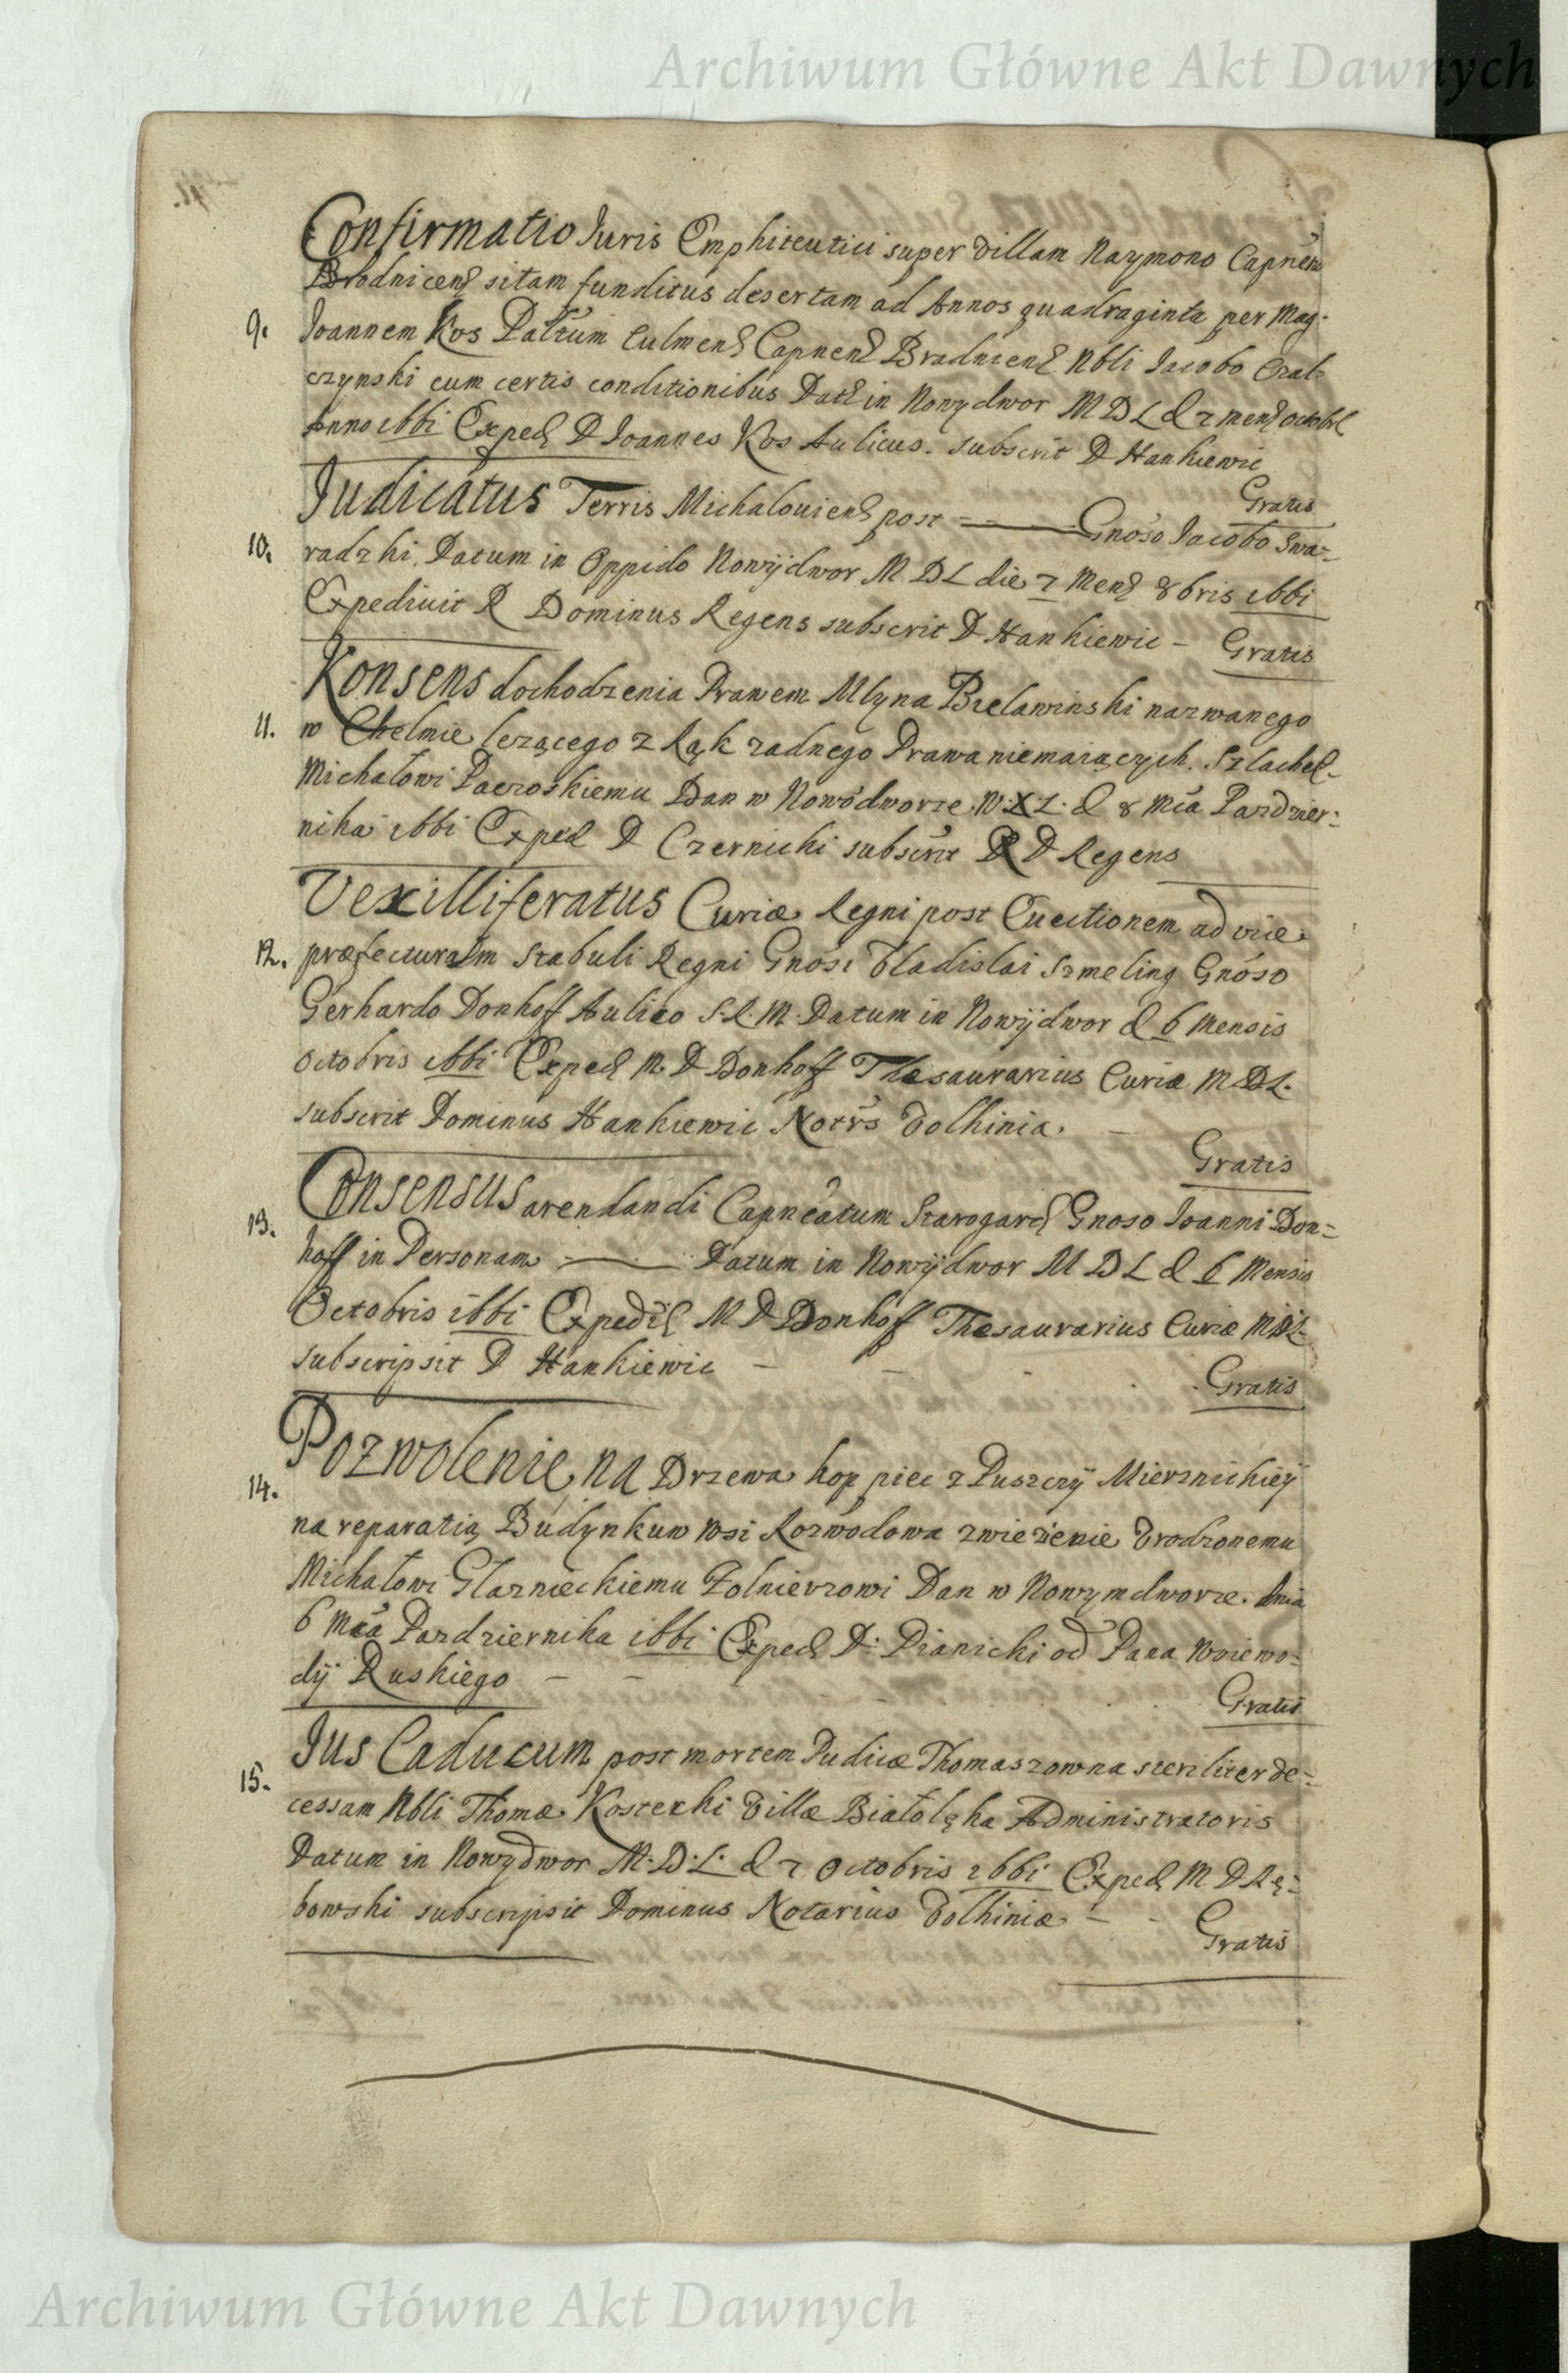 Archiwum Główne Akt Dawnych
Confirmatio Juris Emphiteutici super Villam Naymono Capnēū
Brodnicens sitam funditus desertam ad Annos quadraginta per Mag.
9. Joannem Kos Palttum Culmens Capnens Bradnicens Nbli Jacobo Czal=
czynski cum certis conditionibus Dats in Nowydwor M D L d 7 mens octobr
Anno 1661 Exped D Joannes Kos Aulicus. subscrit D Hankiewic
Gratis
Judicatus Terris Michalouiens post — Gnoso Jacobo Swa=
10. radzki. Datum in Oppido Nowydwor M D L die 7 Mens 8bris 1661
Expediuit R Dominus Regens subscrit D Hankiewic - Gratis
Konsens dochodzenia Prawem Mlyna Bielawinski nazwanego
11. w Chelmie lezącego z Rąk zadnego Prawa niemaiączych. Szlachet=
Michałowi Paczoskiemu Dan w Nowodworze. W. X L. d 8 mca Pazdzier=
nika 1661 Exped D Czernicki subscrit R D Regens
Vexilliferatus Curiæ Regni post Euectionem ad vice
12. præfecturam Stabuli Regni Gnosi Vladislai Szmeling Gnoso
Gerhardo Donhoff Aulico S. R. M. Datum in Nowydwor d 6 Mensis
Octobris 1661 Exped M D Donhoff Thesaurarius Curiæ M D L.
subscrit Dominus Hankiewic Notrs Volhinia.
Gratis
Consensus arendandi Capneatum Starogard Gnoso Joanni Don=
13. hoff in Personam — Datum in Nowydwor M D L d 6 Mensis
Octobris 1661 Expedit M D Donhoff Thesaurarius Curiæ M D L
subscripsit D Hankiewic - - - Gratis
Pozwolenie na Drzewa kop piec z Puszczy Mierznickiey
14. na reparatią Budynkuw Wsi Rozwodowa zwiezienie Vrodzonemu
Michałowi Glaznieckiemu Zolnierzowi Dan w Nowymdworze. dnia
6 Mca Pazdziernika 1661 Exped D: Pianicki od Pana Woiewo=
dy Ruskiego - - - Gratis
Jus Caducum post mortem Pudicæ Thomaszowna steriliter de=
15. cessam Nbli Thomæ Kostecki Villæ Białołęka Administratoris
Datum in Nowydwor M. D. L. d 7 Octobris 1661 Exped M D Rę=
bowski subscripsit Dominus Notarius Volhiniæ - - Gratis
Archiwum Główne Akt Dawnych